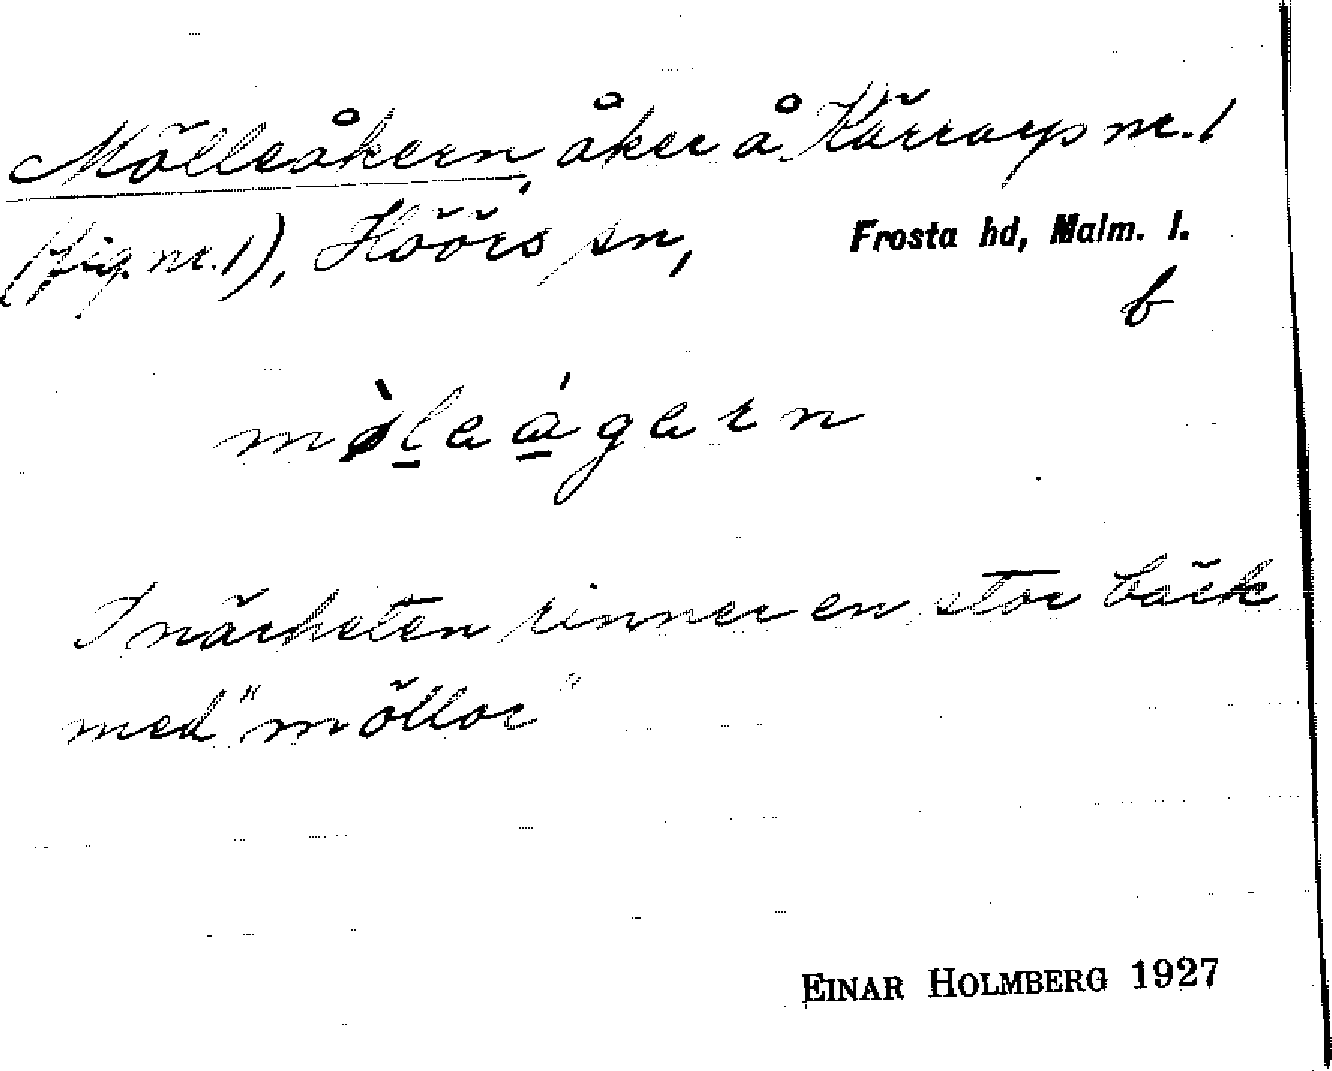 Mölleåkern, åker å Kärraryp nr. 1
(fig. nr. 1), Höörs sn, Frosta hd, Malm. l.
b
mø̀leágern
I närheten rinner en stor bäck
med "möllor"
EINAR HOLMBERG 1927